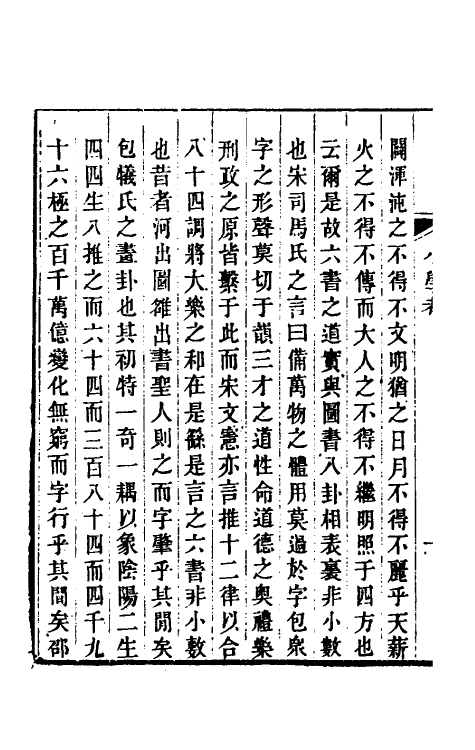 闢渾沌之不得不文明猶之日月不得不麗乎天薪
火之不得不傳而大人之不得不繼明照于四方也
云爾是故六書之道實與圖書八卦相表裏非小數
也宋司馬氏之言曰備萬物之體用莫過於字包衆
字之形聲莫切于韻三才之道性命道德之奧禮樂
刑政之原皆繫于此而宋文憲亦言推十二律以合
八十四調將大樂之和在是繇是言之六書非小數
也昔者河出圖雒出書聖人則之而字肇乎其閒矣
包犧氏之畫卦也其初特一奇一耦以象陰陽二生
四四生八推之而六十四而三百八十四而四千九
十六極之百千萬億變化無窮而字行乎其間矣邵
小學考